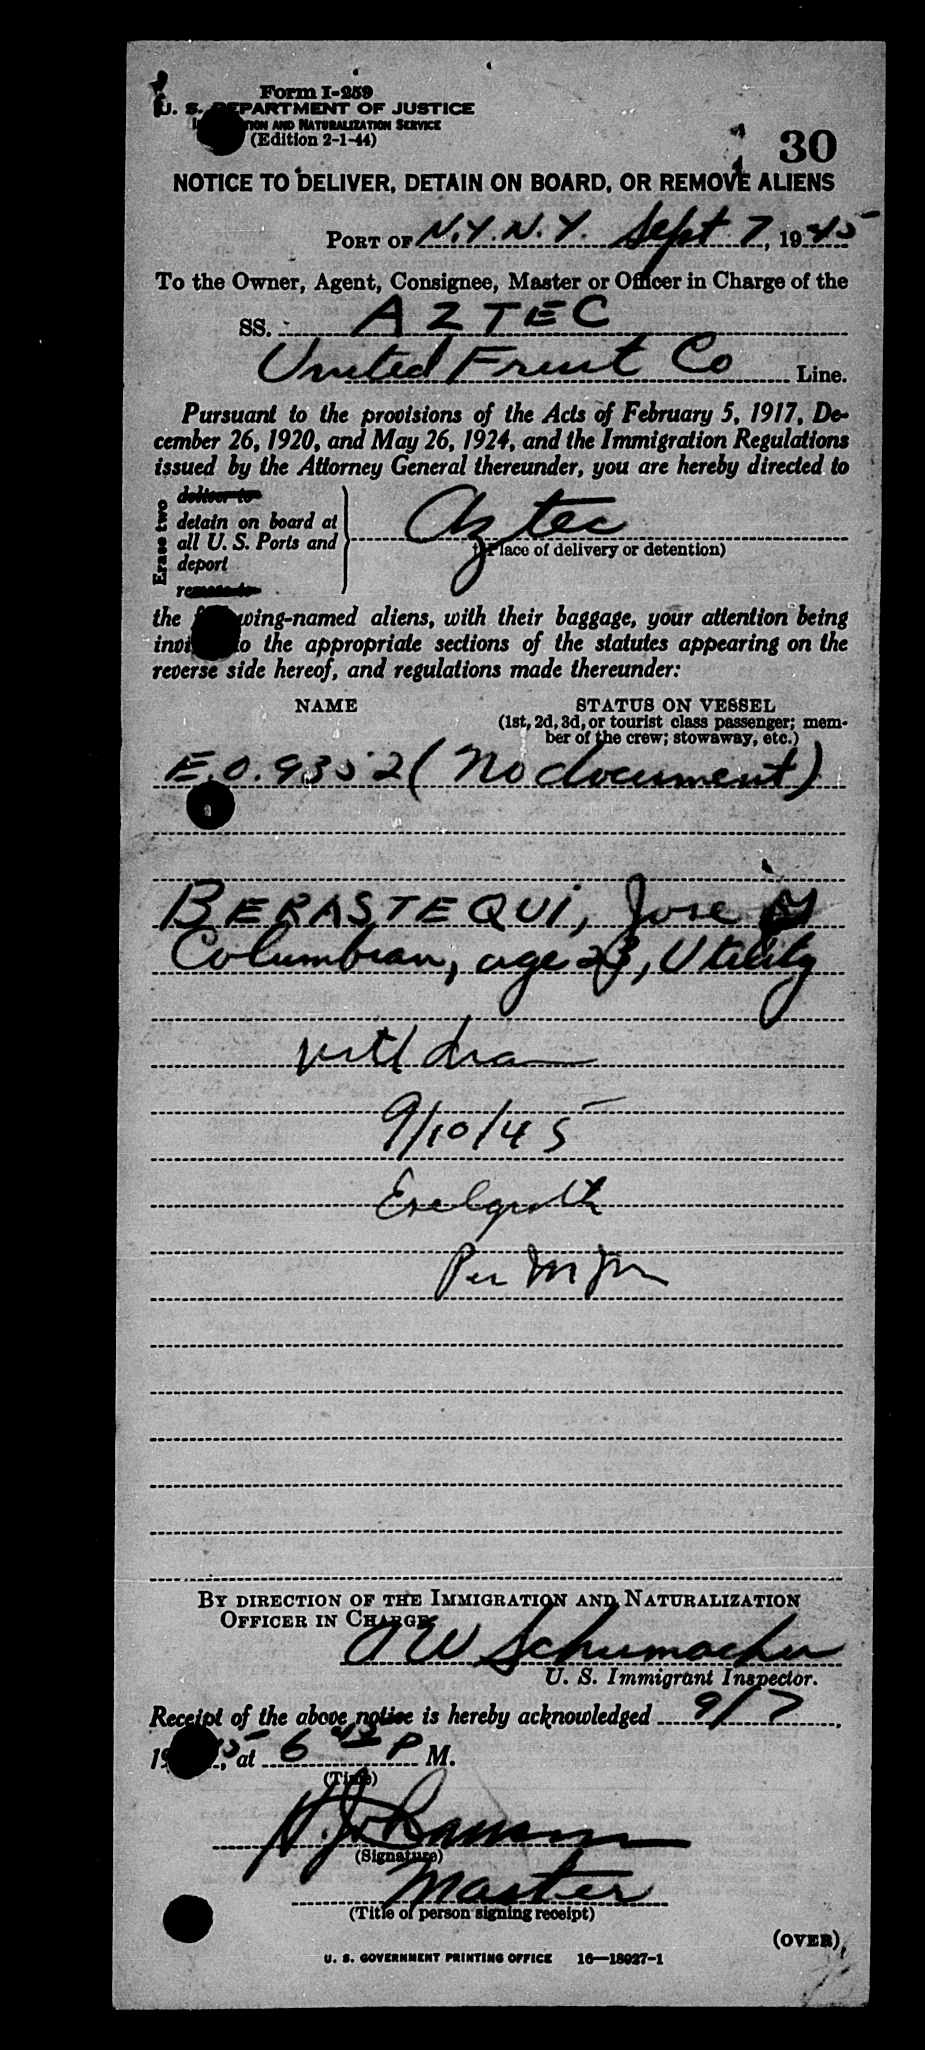 Form I-259
U. S. DEPARTMENT OF JUSTICE
IMMIGRATION AND NATURALIZATION SERVICE
(Edition 2-1-44)
30
NOTICE TO DELIVER, DETAIN ON BOARD, OR REMOVE ALIENS
PORT OF N.Y. N.Y. Sept 7, 1945
To the Owner, Agent, Consignee, Master or Officer in Charge of the
SS. AZTEC
United Fruit Co Line.
Pursuant to the provisions of the Acts of February 5, 1917, De-
cember 26, 1920, and May 26, 1924, and the Immigration Regulations
issued by the Attorney General thereunder, you are hereby directed to
Erase two
deliver to
detain on board at
all U. S. Ports and
deport
remove to
Aztec
(Place of delivery or detention)
the following-named aliens, with their baggage, your attention being
invited to the appropriate sections of the statutes appearing on the
reverse side hereof, and regulations made thereunder:
NAME STATUS ON VESSEL
(1st, 2d, 3d, or tourist class passenger; mem-
ber of the crew; stowaway, etc.)
E.O. 9352 (No document)
BERASTEQUI, Jose
Columbian, age 23, Utility
9/10/45
Per
BY DIRECTION OF THE IMMIGRATION AND NATURALIZATION
OFFICER IN CHARGE
W Schumacher
U. S. Immigrant Inspector.
Receipt of the above notice is hereby acknowledged 9/7,
1945, at 6 45 P M.
(Time)
(Signature)
Master
(Title of person signing receipt)
(OVER)
U. S. GOVERNMENT PRINTING OFFICE 16—18027-1